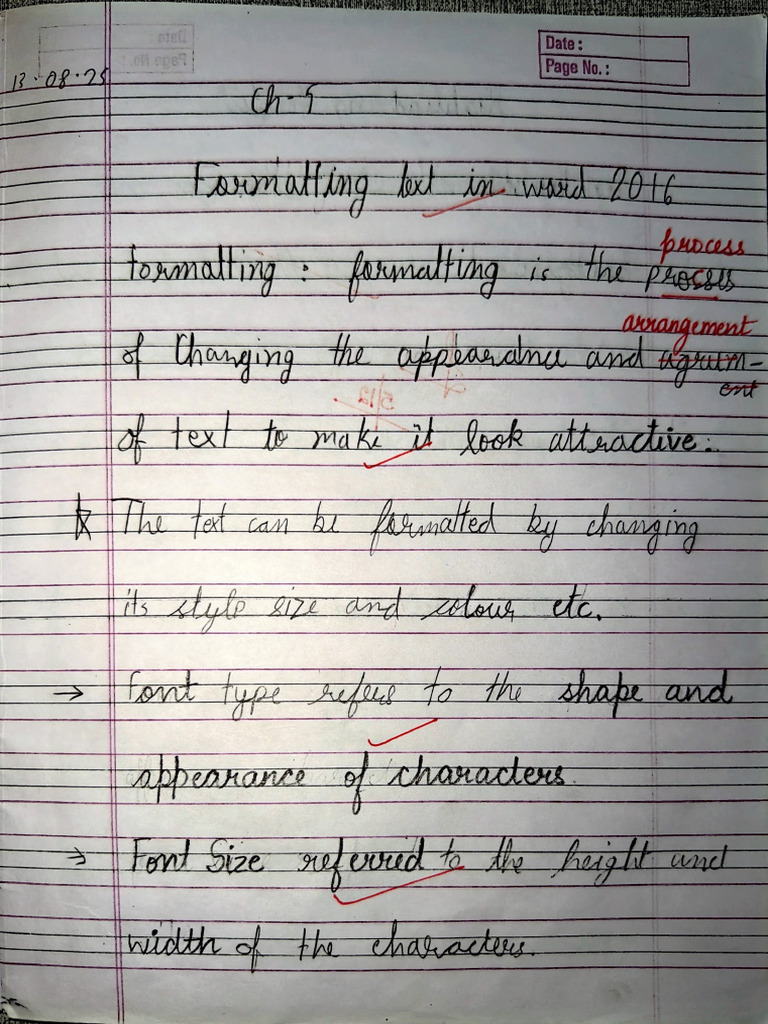 Date :
Page No. :
13.08.25
Ch-5
Formatting text in word 2016
process
formatting : formatting is the procsss
arrangement
of Changing the appearance and agrum-
ent
of text to make it look attractive.
The text can be formatted by changing
its style size and colour etc.
→ Font type refers to the shape and
appearance of characters.
→ Font Size referred to the height and
width of the characters.